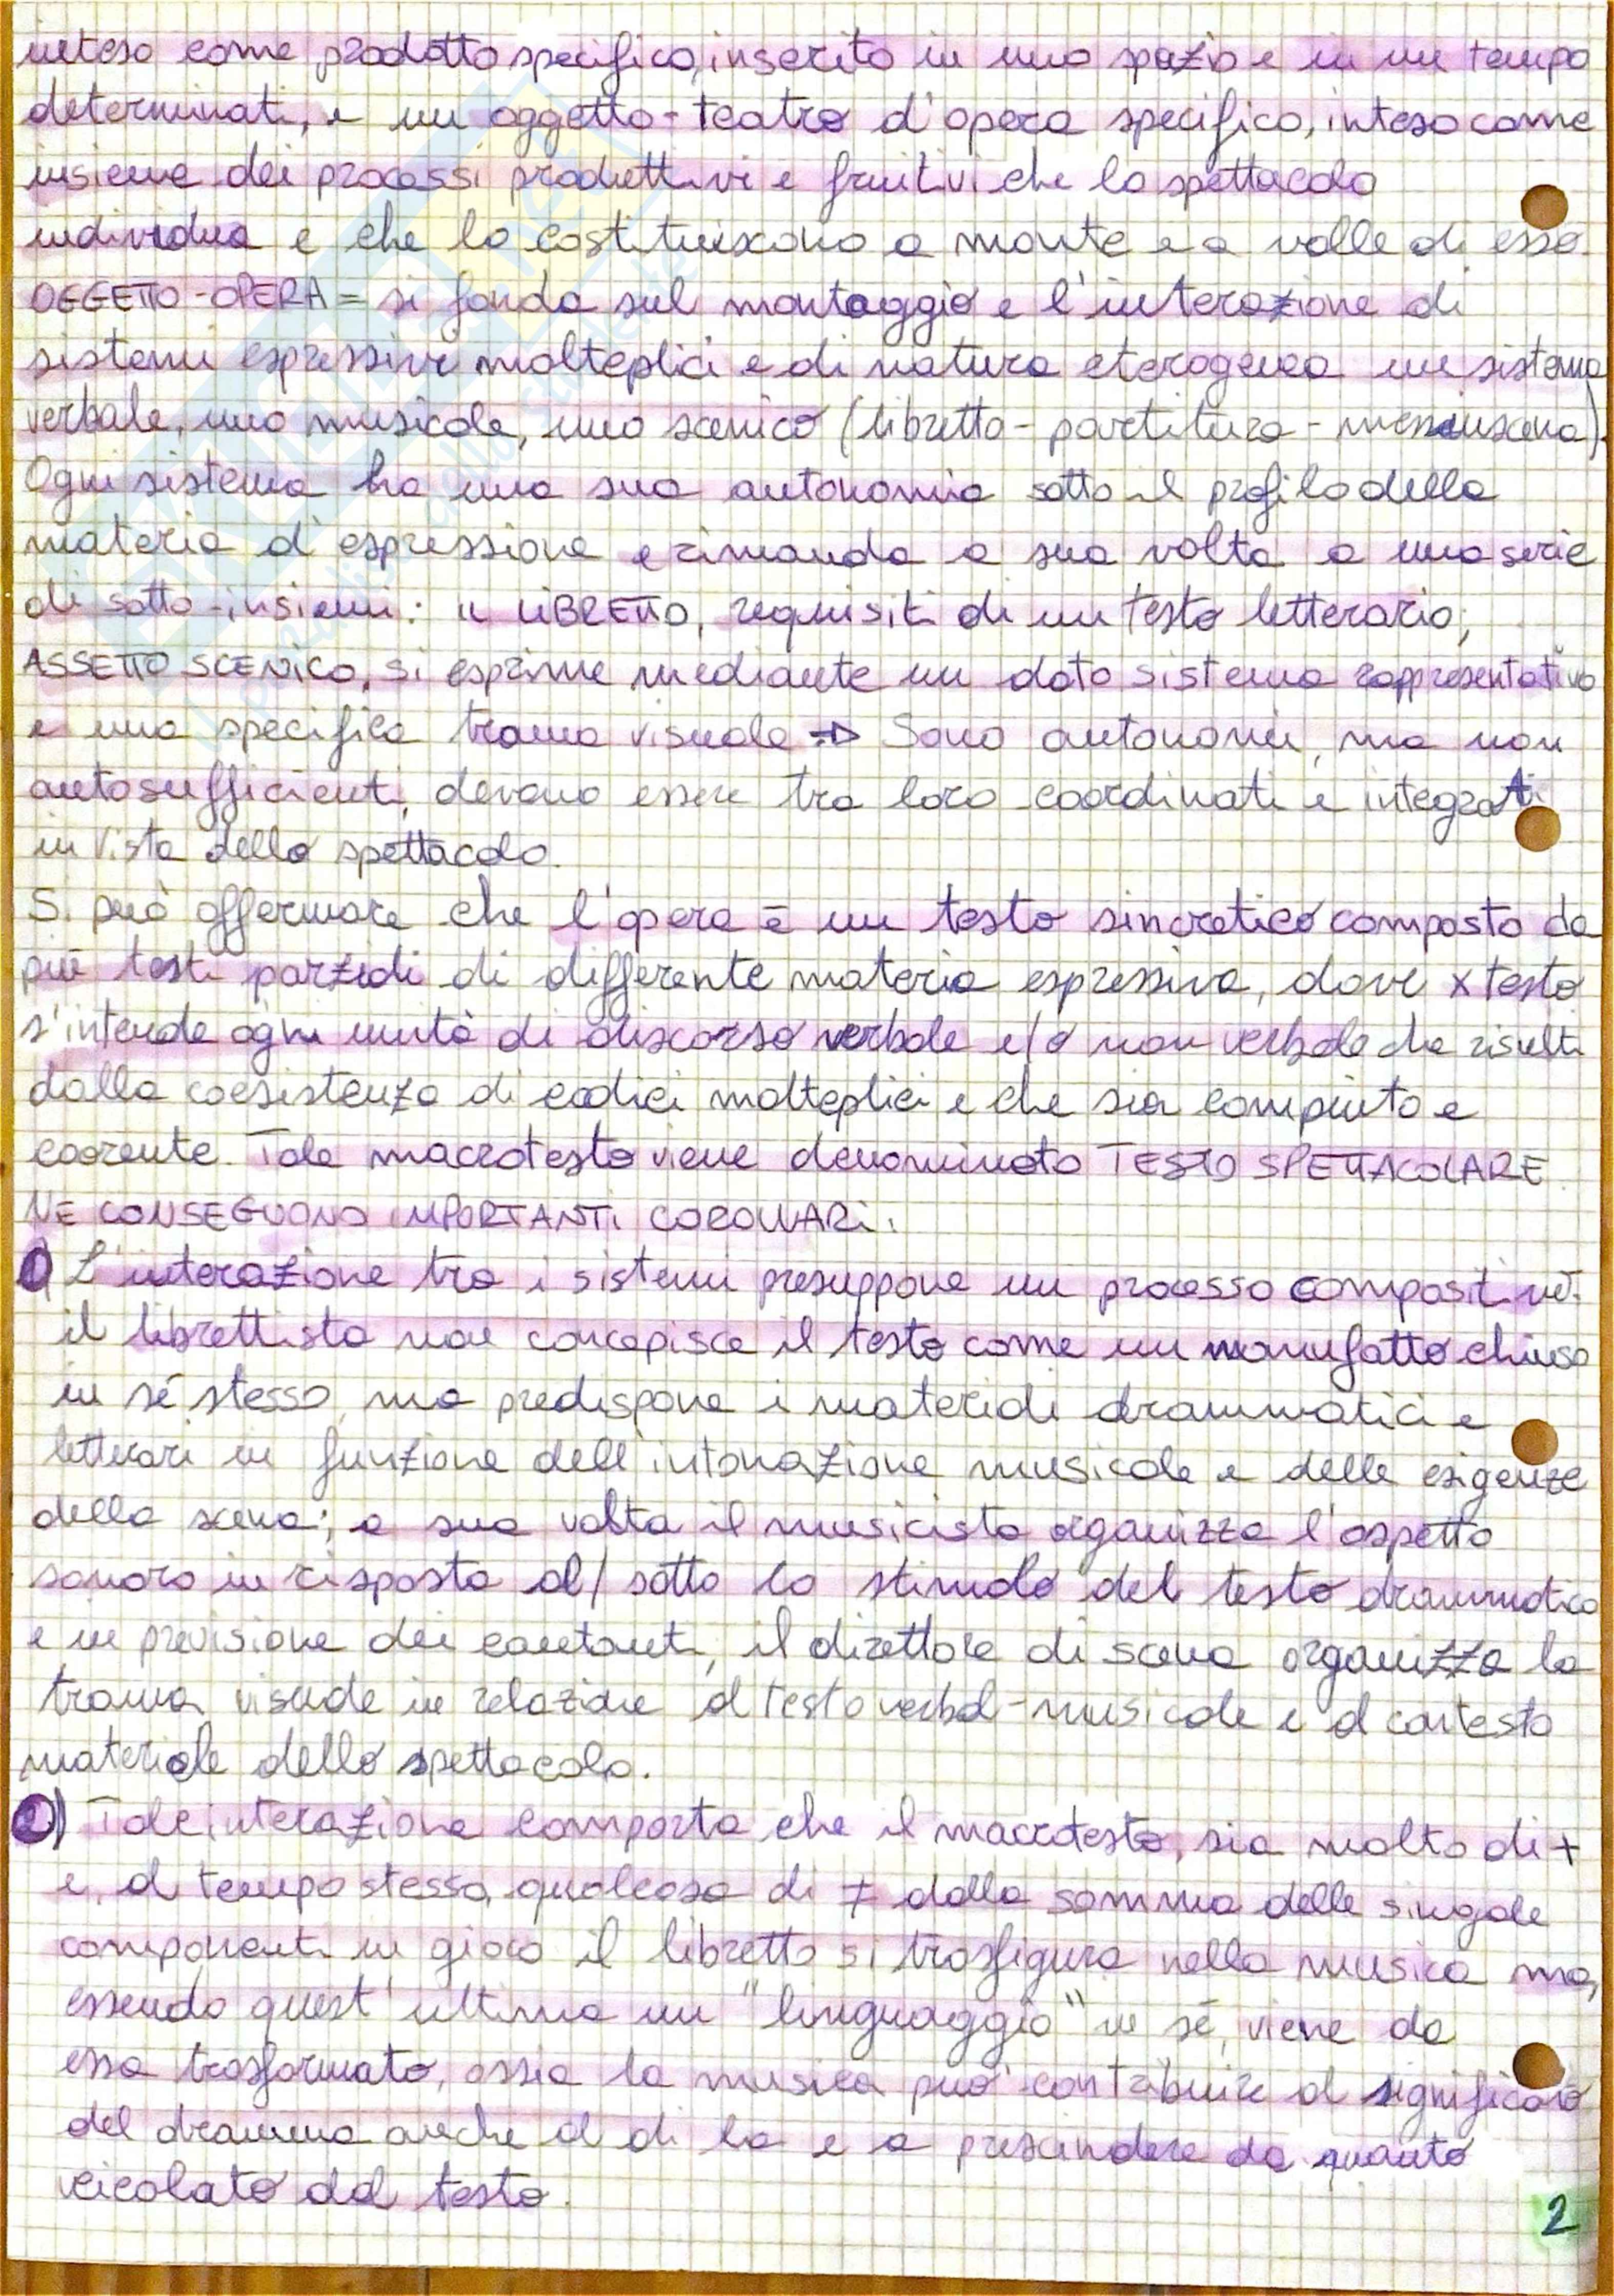 inteso come prodotto specifico, inserito in uno spazio e in un tempo
determinati, e un oggetto-teatro d'opera specifico, inteso come
insieme dei processi produttivi e fruitivi che lo spettacolo
individua e che lo costituiscono a monte e a valle di esso.
OGGETTO-OPERA = si fonda sul montaggio e l'interazione di
sistemi espressivi molteplici e di natura eterogenea un sistema
verbale, uno musicale, uno scenico (libretto - partitura - messinscena).
Ogni sistema ha una sua autonomia sotto il profilo della
materia d'espressione e rimanda a sua volta a una serie
di sotto-insiemi: IL LIBRETTO, requisiti di un testo letterario;
ASSETTO SCENICO, si esprime mediante un dato sistema rappresentativo
e una specifica trama visuale ⇒ Sono autonomi, ma non
autosufficienti, devono essere tra loro coordinati e integrati
in vista dello spettacolo.
Si può affermare che l'opera è un testo sincretico composto da
più testi parziali di differente materia espressiva, dove x testo
s'intende ogni unità di discorso verbale e/o non verbale che risulti
dalla coesistenza di codici molteplici e che sia compiuto e
coerente. Tale macrotesto viene denominato TESTO SPETTACOLARE.
NE CONSEGUONO IMPORTANTI COROLLARI:
1) L'interazione tra i sistemi presuppone un processo compositivo:
il librettista non concepisce il testo come un manufatto chiuso
in sé stesso, ma predispone i materiali drammatici e
letterari in funzione dell'intonazione musicale e delle esigenze
della scena; a sua volta il musicista organizza l'aspetto
sonoro in risposta al/sotto lo stimolo del testo drammatico
e in previsione dei cantanti, il direttore di scena organizza la
trama visuale in relazione al testo verbal-musicale e al contesto
materiale dello spettacolo.
2) Tale interazione comporta che il macrotesto, sia molto di +
e, al tempo stesso, qualcosa di ≠ dalla somma delle singole
componenti in gioco il libretto si trasfigura nella musica ma,
essendo quest'ultima un "linguaggio" in sé, viene da
essa trasformato, ossia la musica può contribuire al significato
del dramma anche al di la e a prescindere da quanto
veicolato dal testo.
2